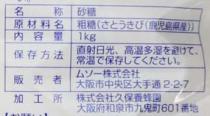 名称 砂糖
原材料名 粗糖(さとうきび(鹿児島県産))
内容量 1kg
保存方法 直射日光、高温多湿を避けて、
常温で保存してください。
販売者 ムソー株式会社
大阪市中央区大手通2-2-7
加工所 株式会社久保養蜂園
大阪府和泉市九鬼町601番地